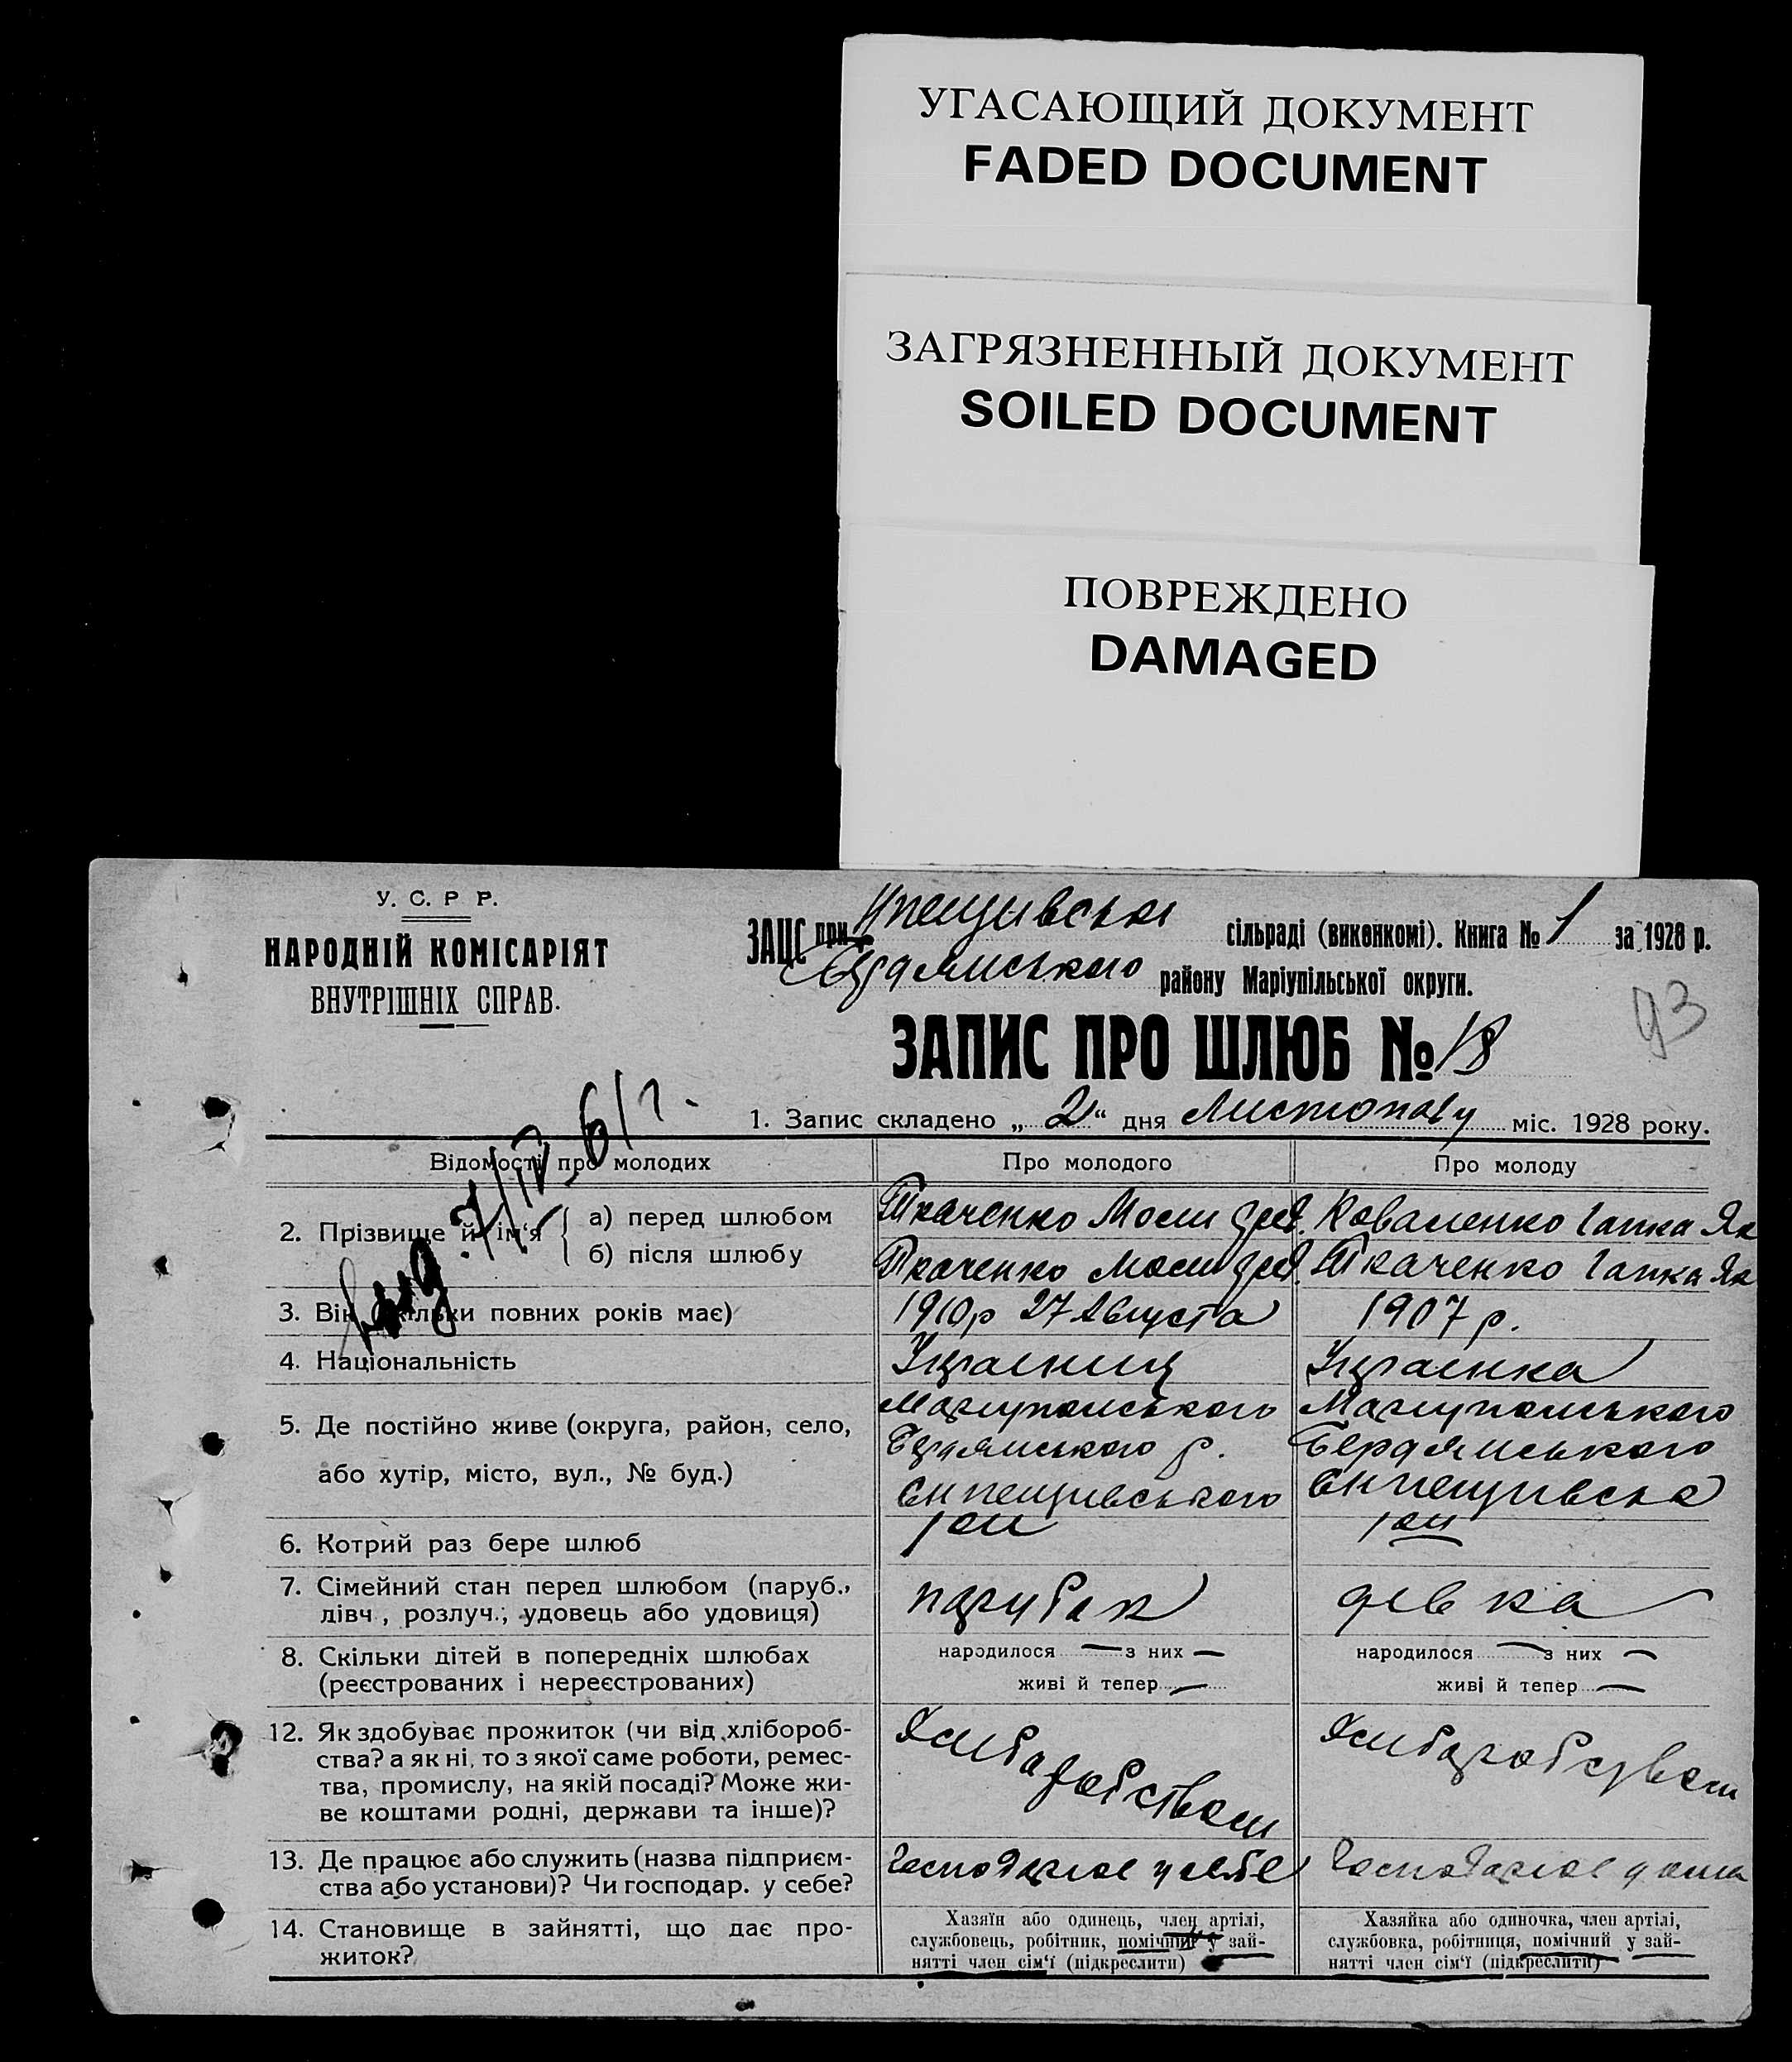 УГАСАЮЩИЙ ДОКУМЕНТ
FADED DOCUMENT
ЗАГРЯЗНЕННЫЙ ДОКУМЕНТ
SOILED DOCUMENT
ПОВРЕЖДЕНО
DAMAGED
У. С. Р Р.
НАРОДНІЙ КОМІСАРІЯТ
ВНУТРІШНІХ СПРАВ.
ЗАЦС при сільраді (виконкомі). Книга № 1 за 1928 р.
району Маріупільської округи.
93
ЗАПИС ПРО ШЛЮБ № 18
1. Запис складено „ 2 “ дня Листопаду міс. 1928 року.
Відомості про молодих
Про молодого
Про молоду
2. Прізвище й ім'я { а) перед шлюбом
Ткаченко Моси
Коваленко Гапка Як
б) після шлюбу
Ткаченко Моси
Ткаченко Гапка Як
3. Вік (скільки повних років має)
1910р 27 Августа
1907 р.
4. Національність
Украинец
Украінка
5. Де постійно живе (округа, район, село,
або хутір, місто, вул., № буд.)
Мариупольського
р.
Мариупольського
Бердянського
6. Котрий раз бере шлюб
1 ий
1 ий
7. Сімейний стан перед шлюбом (паруб.,
дівч., розлуч., удовець або удовиця)
парубак
дівка
8. Скільки дітей в попередніх шлюбах
(реєстрованих і нереєстрованих)
народилося — з них —
живі й тепер —
народилося — з них —
живі й тепер —
12. Як здобуває прожиток (чи від хлібороб-
ства? а як ні, то з якої саме роботи, ремес-
тва, промислу, на якій посаді? Може жи-
ве коштами родні, держави та інше)?
Хлибаробством
Хлибаробством
13. Де працює або служить (назва підприєм-
ства або установи)? Чи господар. у себе?
Господарює у себе
Господарює дома
14. Становище в зайнятті, що дає про-
житок?
Хазяїн або одинець, член артілі,
службовець, робітник, помічний у зай-
нятті член сім'ї (підкреслити)
Хазяйка або одиночка, член артілі,
службовка, робітниця, помічний у зай-
нятті член сім'ї (підкреслити)